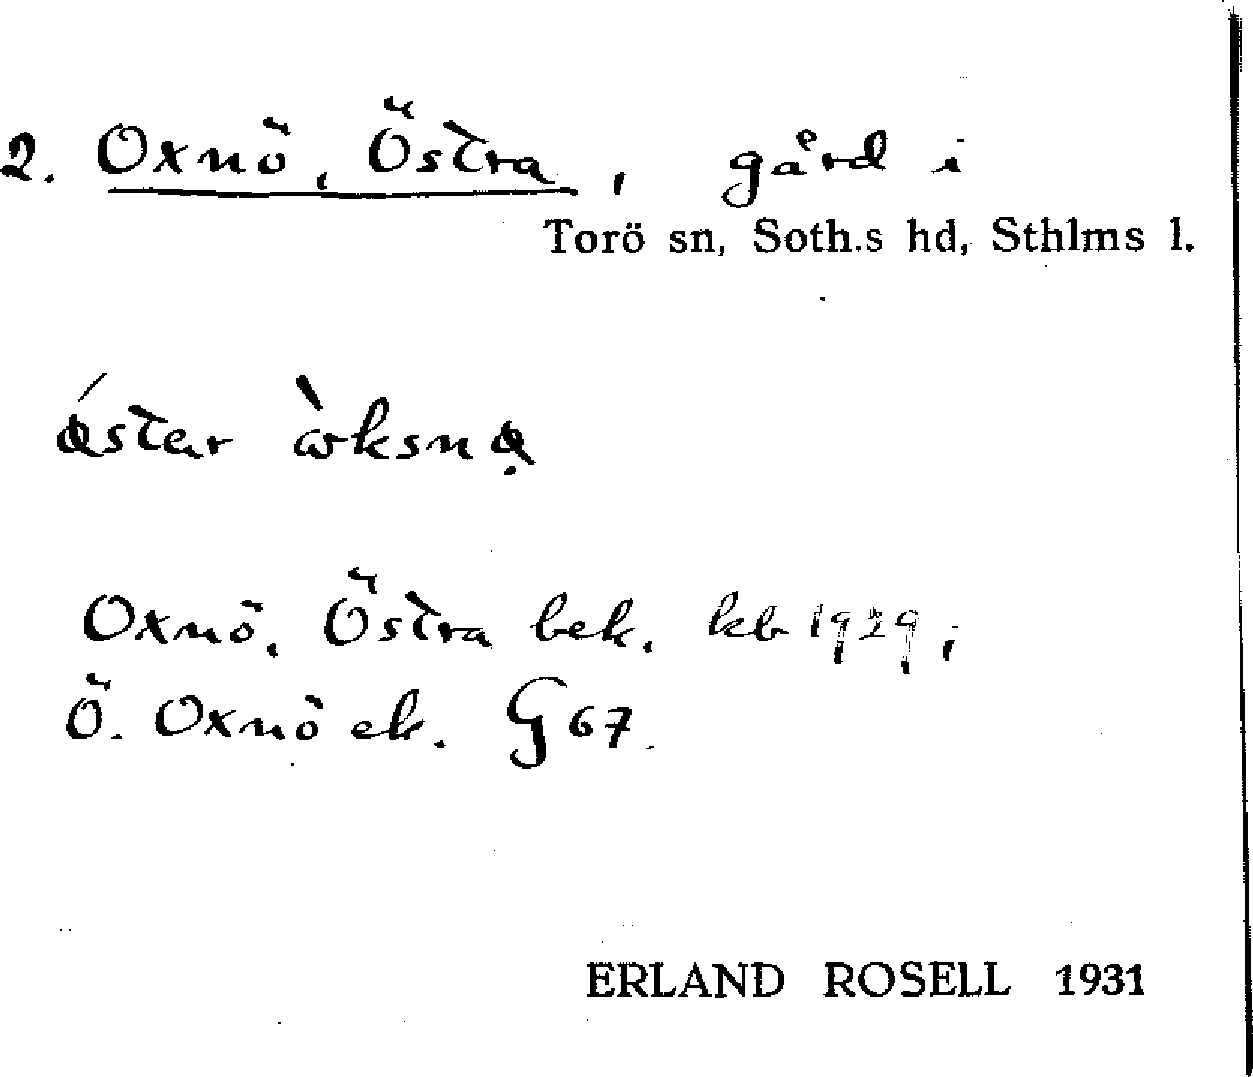 2. Oxnö, Östra, gård i
Torö sn, Soth.s hd, Sthlms l.
Oxnö, Östra bek. kb 1929,
Ö. Oxnö ek. G 67.
ERLAND ROSELL 1931